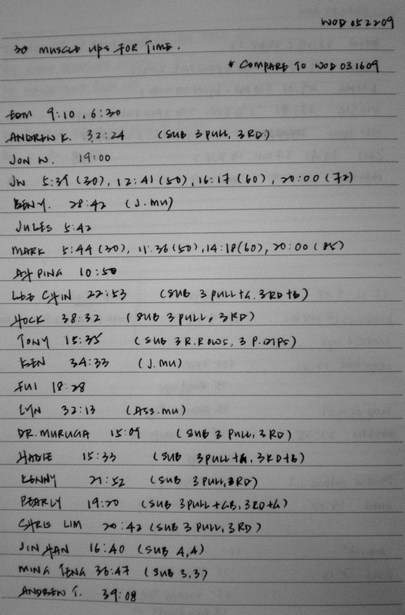 WOD 052209
30 MUSCLE UPS FOR TIME.
* COMPARE TO WOD 031609
EDM 9:10, 6:30
ANDREW K. 32:24 (SUB 3 PULL, 3RD)
JON W. 19:00
JW 5:39 (30), 12:41 (50), 16:17 (60), 20:00 (72)
BENY. 28:42 (J.MU)
JULES 5:42
MARK 5:44 (30), 11:36 (50), 14:18 (60), 20:00 (85)
AH PING 10:50
LEE CHIN 22:53 (SUB 3 PULL+G, 3RD+B)
HOCK 38:32 (SUB 3 PULL, 3RD)
TONY 15:35 (SUB 3R.ROWS, 3 P.DIPS)
KEN 34:33 (J.MU)
FUI 18:28
LYN 32:13 (ASS.MU)
DR.MURUGA 15:09 (SUB 3 PULL, 3RD)
15:33 (SUB 3PULL+G, 3RD+B)
KENNY 21:52 (SUB 3 PULL, 3RD)
PEARLY 19:20 (SUB 3PULL+GB, 3RD+G)
CHRIS LIM 20:42 (SUB 3 PULL, 3RD)
JIN HAN 16:40 (SUB 4,4)
MING TENG 36:47 (SUB 3,3)
ANDREW T. 39:08